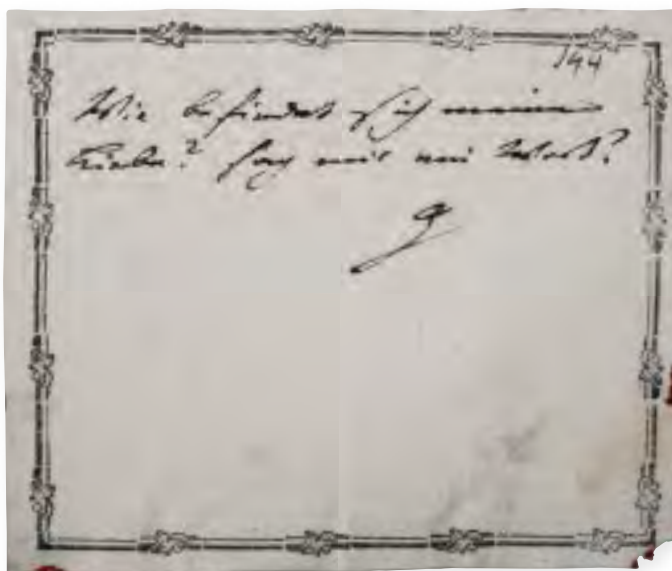 144
Wie befindet sich meine
Liebe? sag mir ein Wort?
G